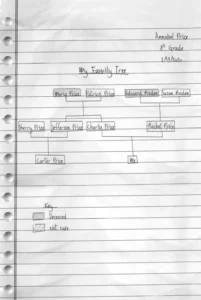 Annabel Price
8th Grade
My Family Tree
Harry Price
Patricia Price
Edward Roden
Susan Roden
Sherry Price
Jefferson Price
Charlie Price
Rachel Price
Carter Price
Me
Key
Deceased
Not sure